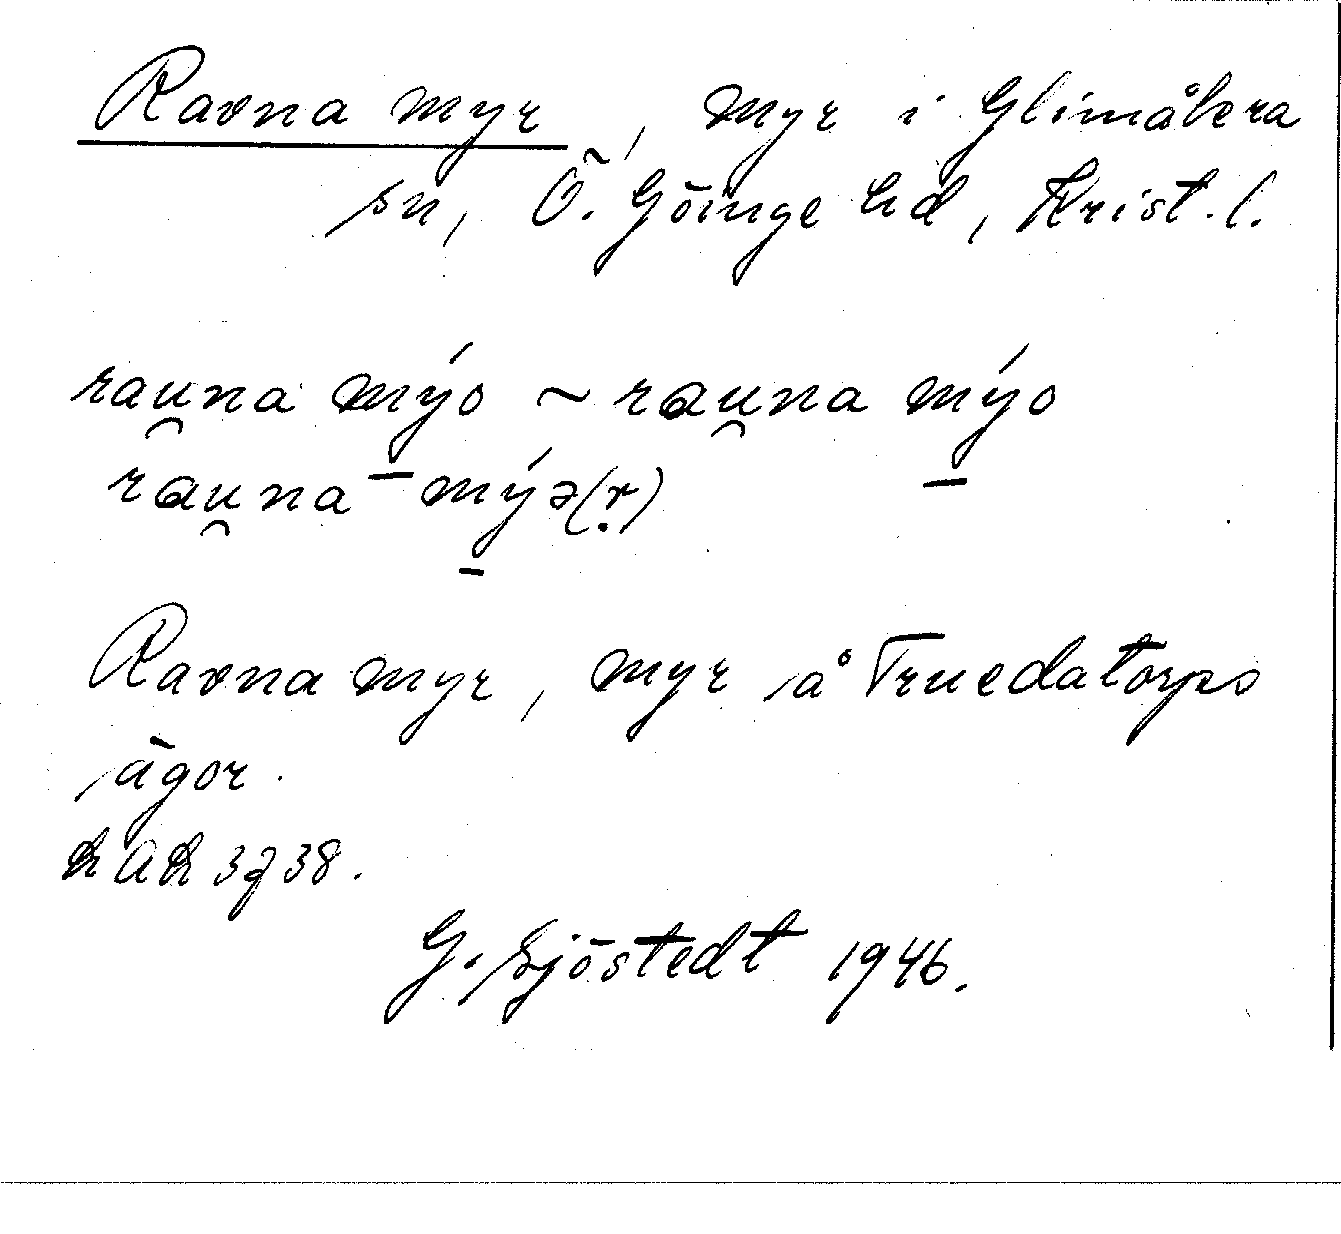 Ravna myr, myr i Glimåkra
sn, Ö. Göinge hd, Krist. l.
rau̯na mýo ~ rau̯na mýo
rau̯na mýə(ṛ)
Ravna myr, myr å Truedatorps
ägor.
RAK 3738.
G. Sjöstedt 1946.